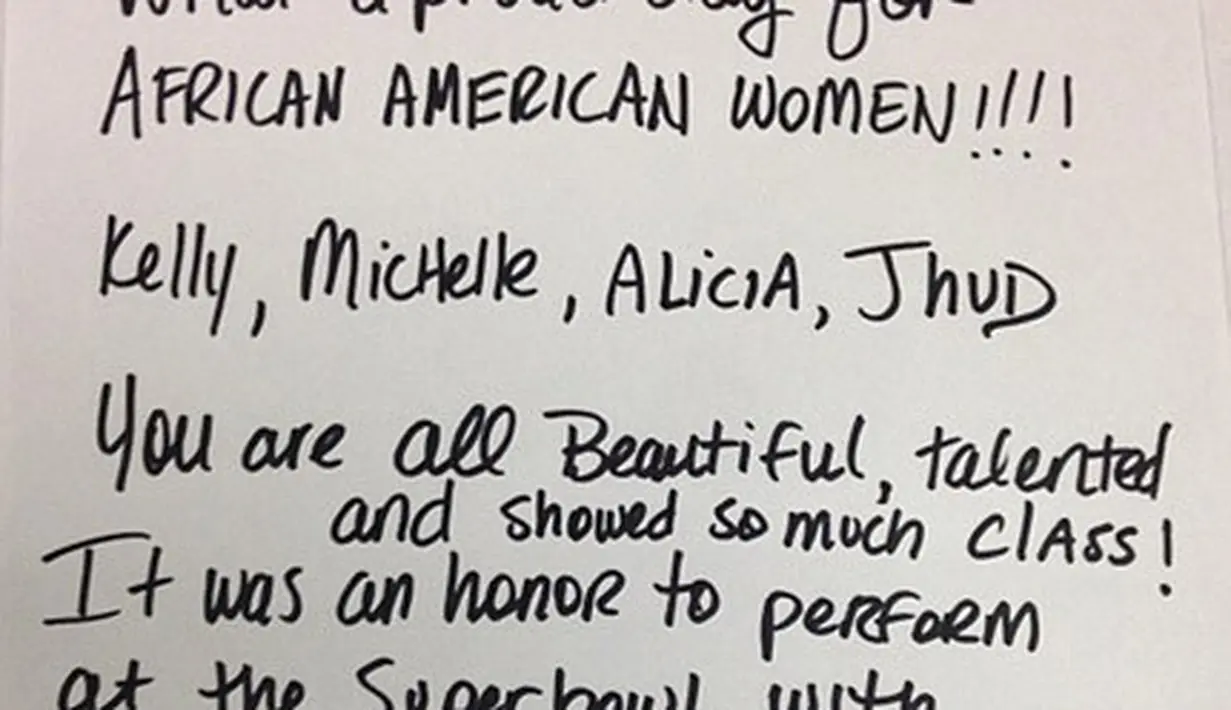 What a proud day for
AFRICAN AMERICAN WOMEN!!!!
Kelly, Michelle, Alicia, Jhud
You are all Beautiful, talented
and showed so much class!
It was an honor to perform
at the Superbowl with